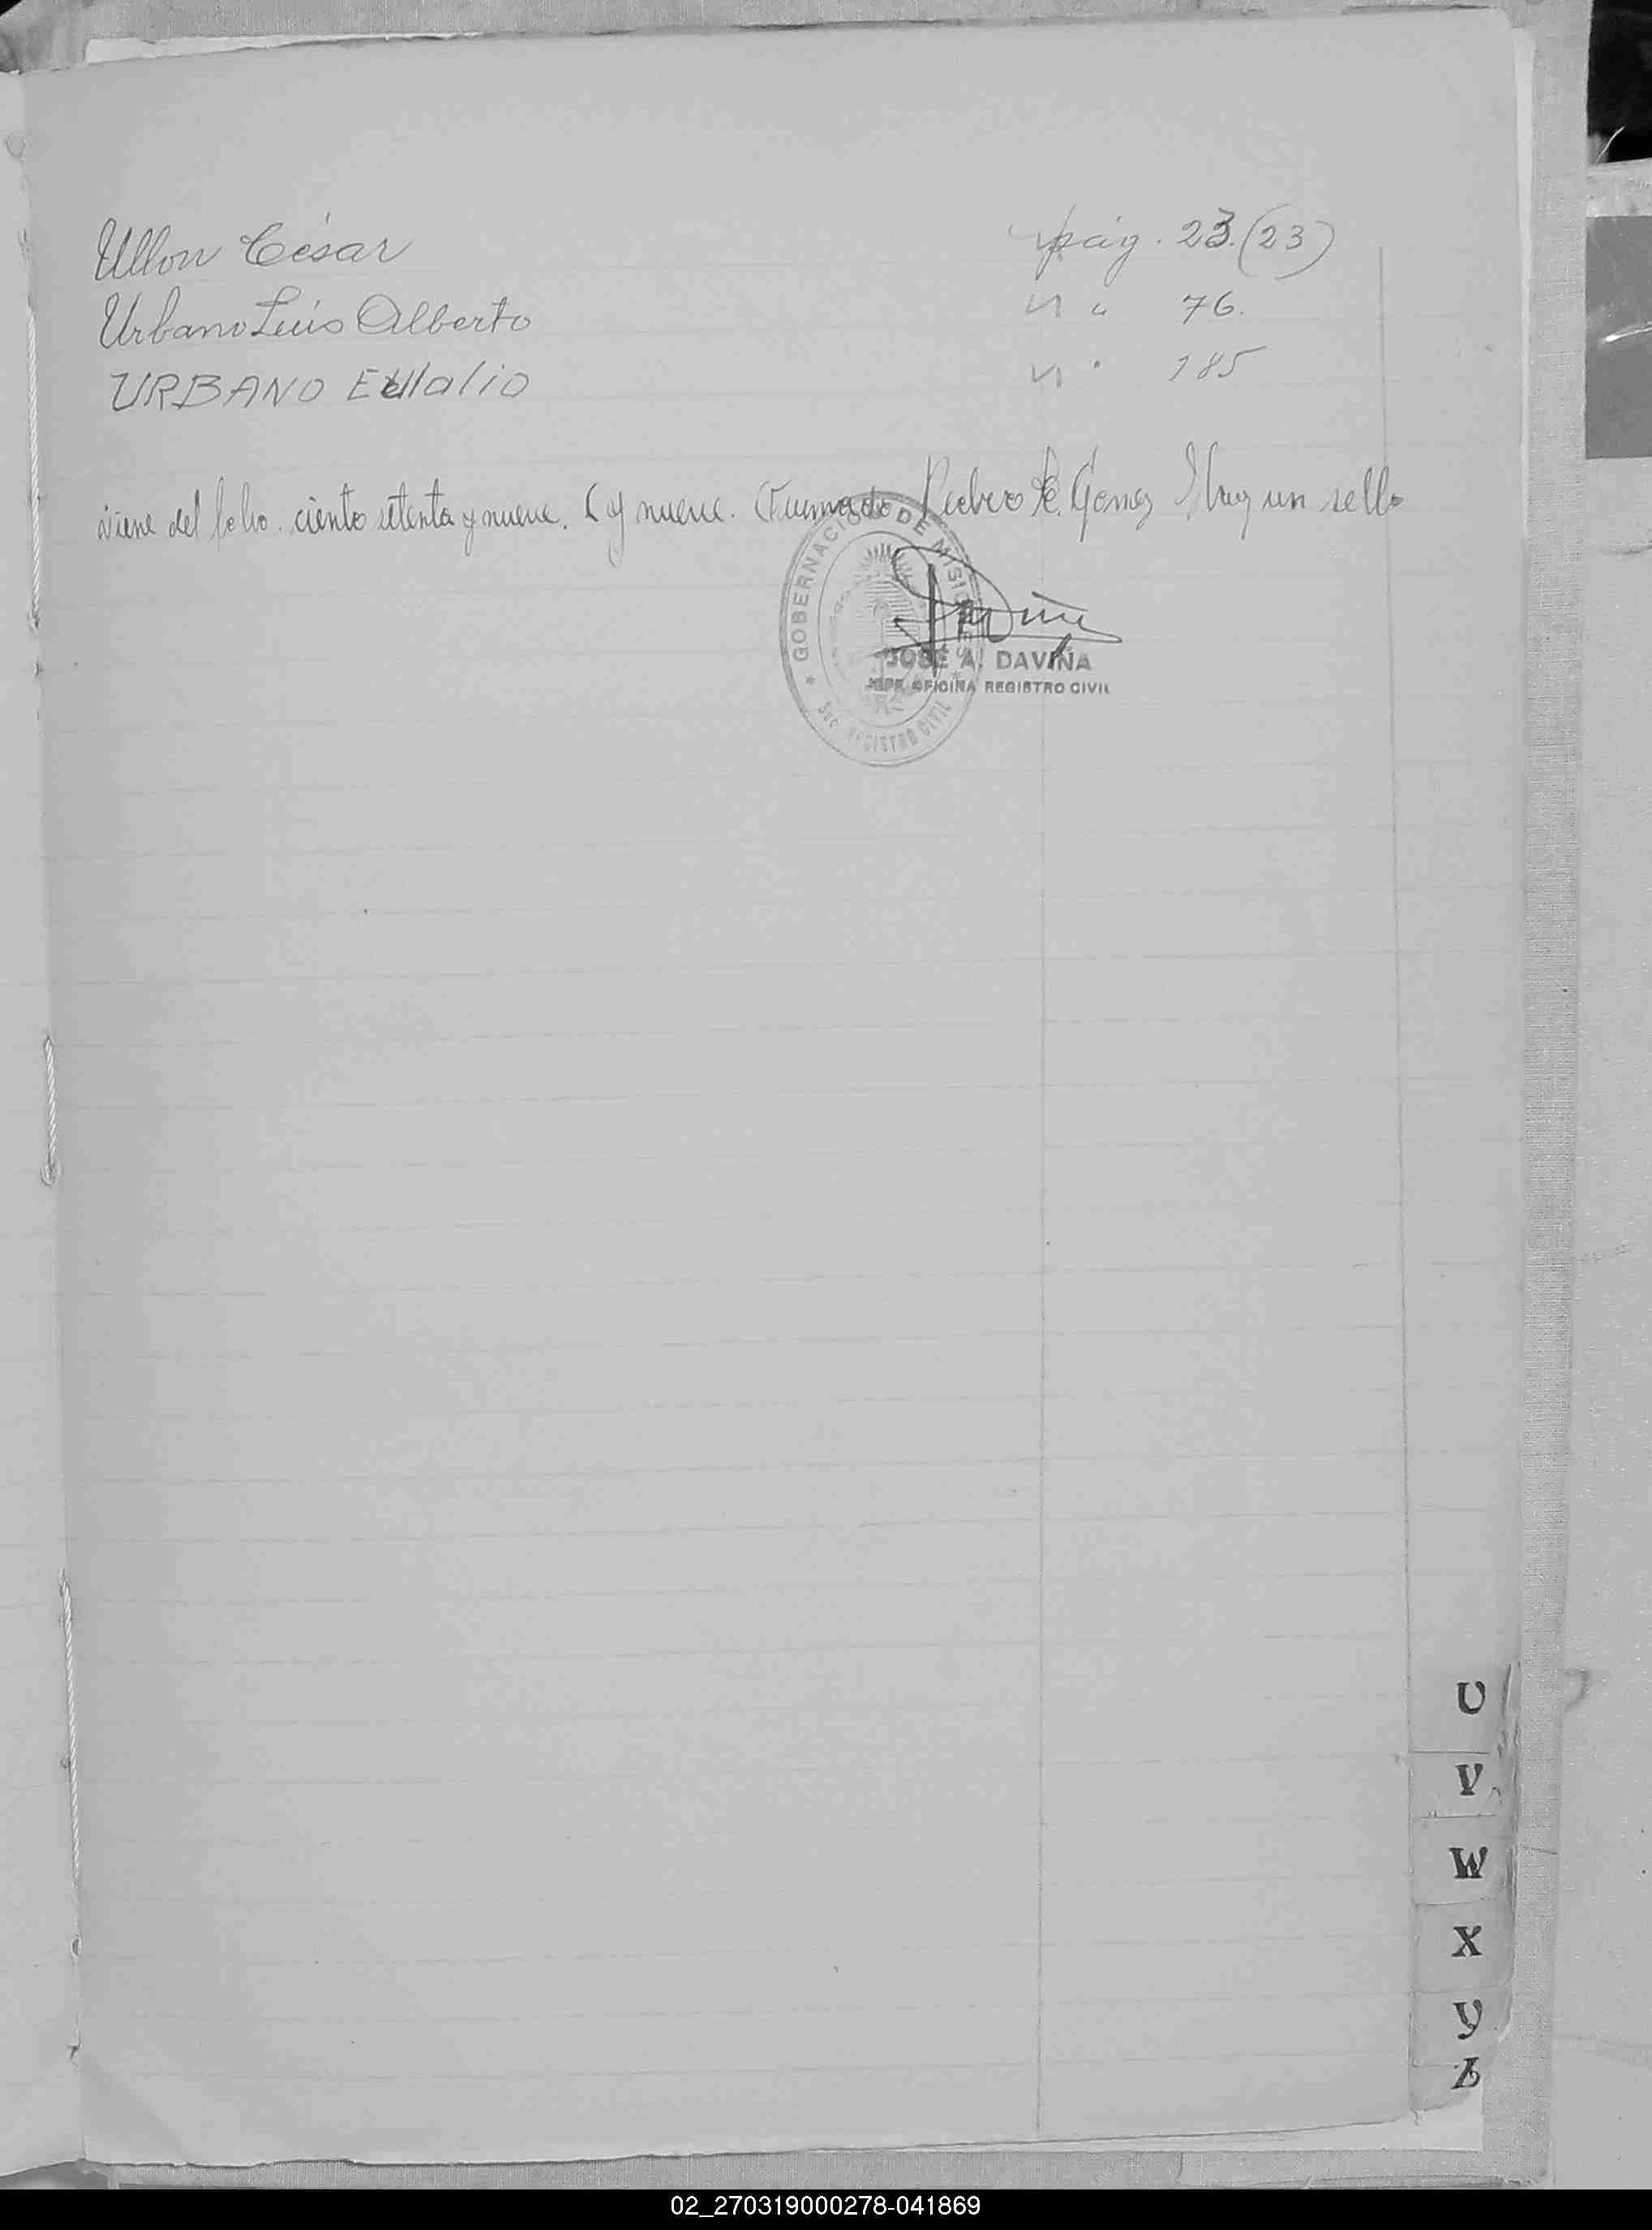 Ullon César pág. 23. (23)
Urbano Luis Alberto " " 76.
URBANO Eulalio " " 185
viene del folio. ciento setenta y nueve. (y nueve. Firmado Pedro R. Gomez Hay un sello
GOBERNACION DE MISIONES
JOSÉ A. DAVIÑA
JEFE OFICINA REGISTRO CIVIL
Sec. REGISTRO CIVIL
U
V
W
X
Y
Z
02_270319000278-041869